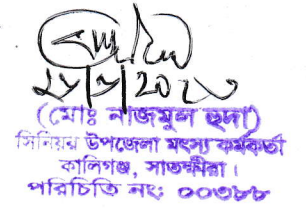 (মোঃ নাজমুল হুদা)
সিনিয়র উপজেলা মৎস্য কর্মকর্তা
কালিগঞ্জ, সাতক্ষীরা।
পরিচিতি নং: ০০৩৮৮